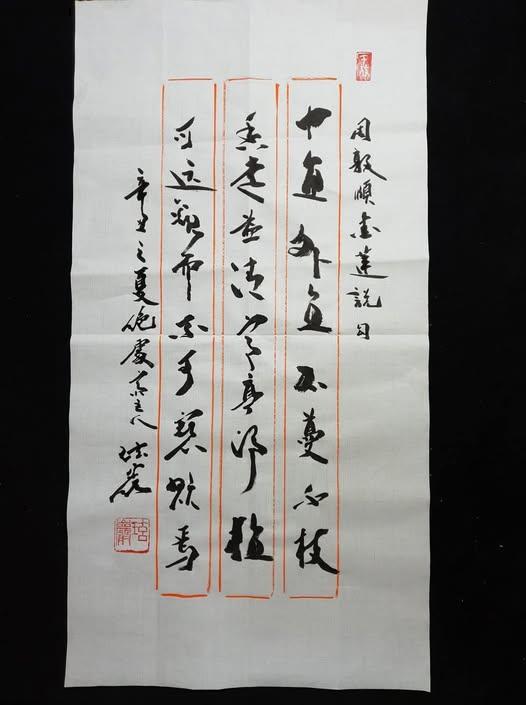 周敦頤愛蓮說句
中通外直不蔓不枝
香遠益清亭亭淨植
可远觀而不可褻玩焉
辛丑之夏